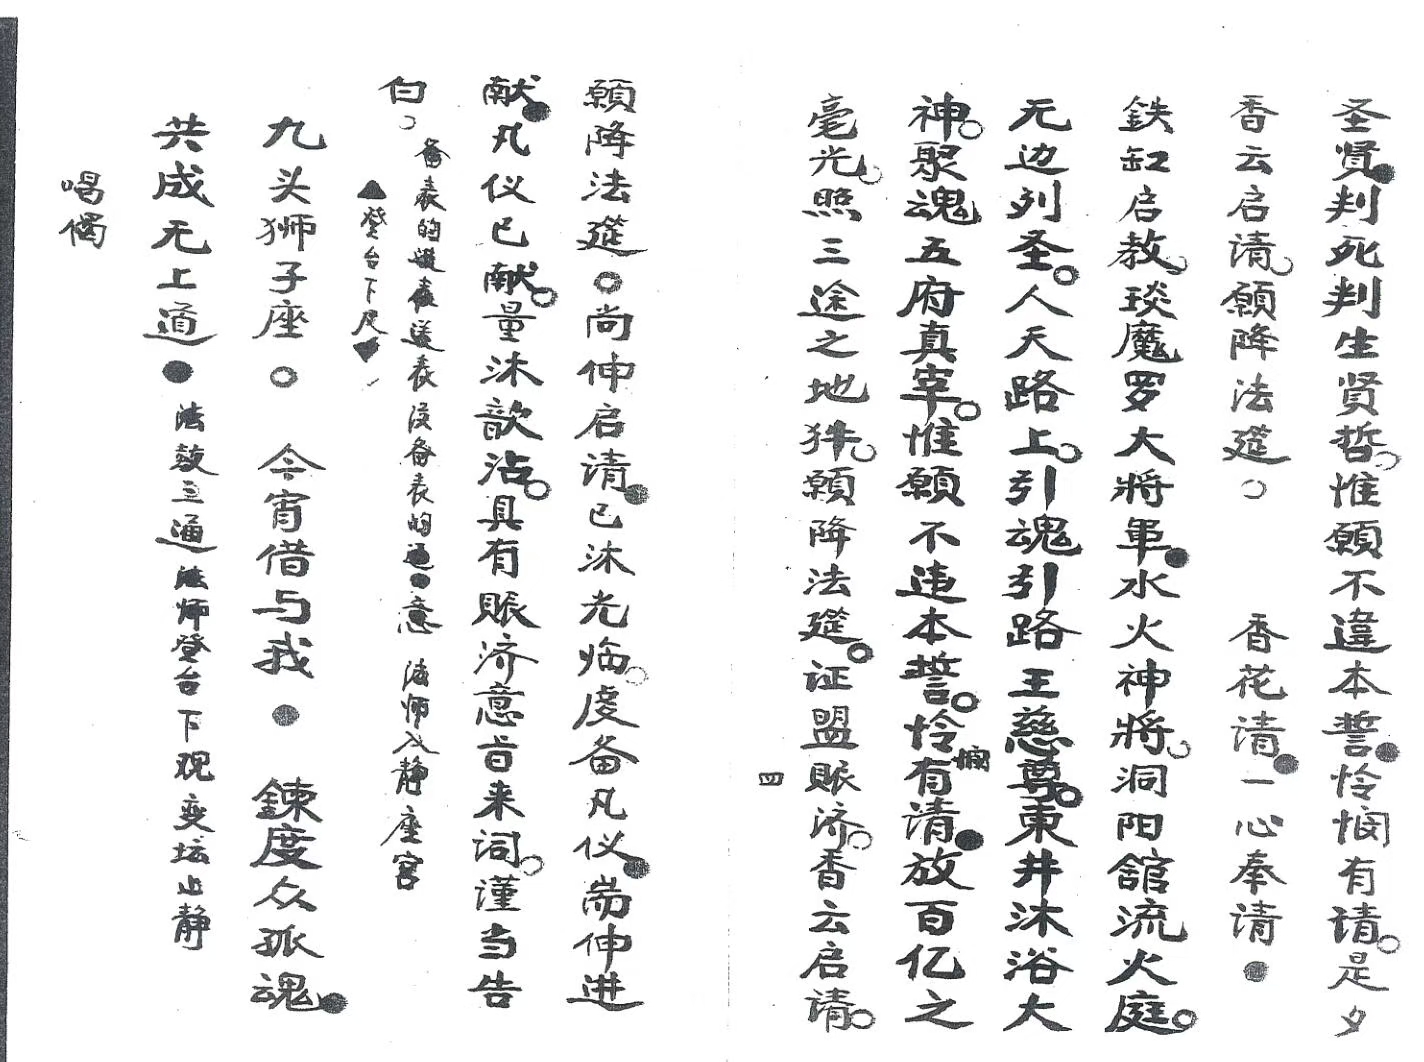 圣贤●判死判生贤哲○惟願不違本誓●怜悯有请○是夕
香云启请○願降法筵○ 香花请●一心奉请●
鉄缸启教○琰魔罗大將軍●水火神將○洞阳舘流火庭○
无边列圣○人天路上○引魂引路王慈尊○東井沐浴大
神○聚魂五府真宰○惟願不违本誓○怜悯有请●放百亿之
毫光○照三途之地犴○願降法筵○证盟赈济○香云启请○
四
願降法筵○尚伸启请●已沐光临○虔备凡仪●耑伸进
献●凡仪已献○量沐歆沾○具有赈济意旨来词○谨当告
白○ 备表的進表送表没备表的通●意 法师入静座宫
▲登台下凳▼
九头狮子座○ 今宵借与我● 鍊度众孤魂●
共成无上道● 法鼓三通法师登台下观变坛止静
喝偈